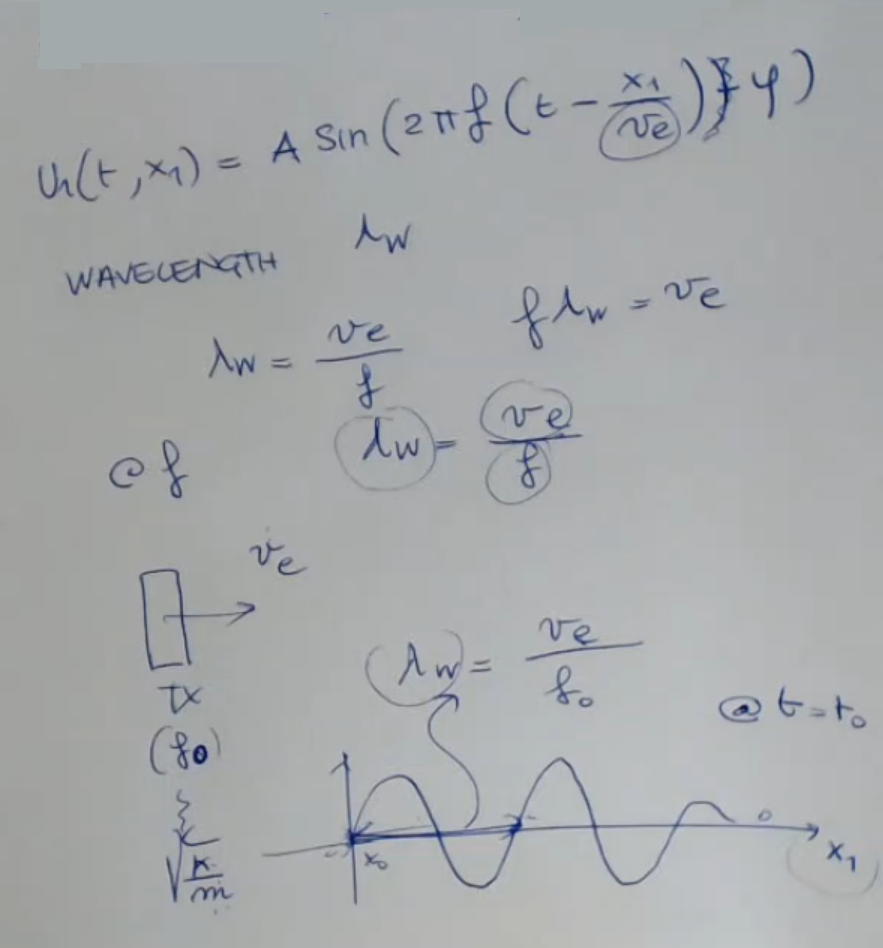 u₁(t, x₁) = A Sin (2πf (t - x₁/ve)) φ)
WAVELENGTH λw
λw = ve/f   f λw = ve
@ f   λw = ve/f
ve
TX
λw = ve/f₀
(f₀)
@ t = t₀
√(K/m)
x₀
x₁